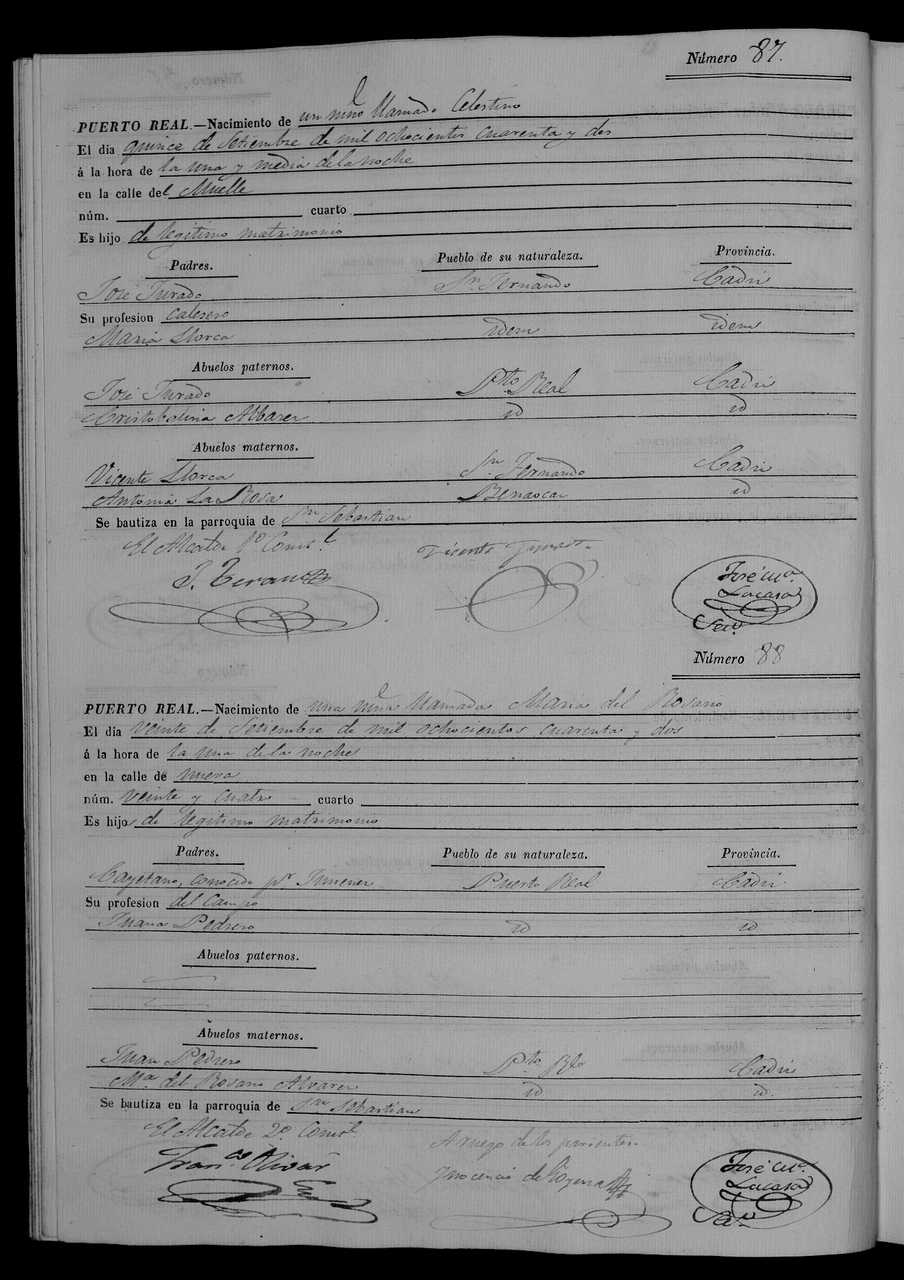 Número 87.
PUERTO REAL.—Nacimiento de un niño llamado Celestino
El dia quince de Setiembre de mil ochocientos cuarenta y dos
á la hora de la una y media de la noche
en la calle del Muelle
núm. cuarto
Es hijo de legitimo matrimonio
Padres. Pueblo de su naturaleza. Provincia.
José Jurado Sn. Fernando Cadiz
Su profesion calesero
Maria Llorca idem idem
Abuelos paternos.
José Jurado Pto. Real Cadiz
Cristobalina Albarez id id
Abuelos maternos.
Vicente Llorca Sn Fernando Cadiz
Antonia La Rosa id
Se bautiza en la parroquia de Sn Sebastian
El Alcalde 1º Consl.
Vicente
José Mª.
Lacasa
Seco.
Número 88
PUERTO REAL.—Nacimiento de una niña llamada Maria del Rosario
El dia veinte de Setiembre de mil ochocientos cuarenta y dos
á la hora de la una de la noche
en la calle de nueva
núm. veinte y cuatro cuarto
Es hijo de legitimo matrimonio
Padres. Pueblo de su naturaleza. Provincia.
Cayetano, conocido pr. Jimenez Puerto Real Cadiz
Su profesion del Campo
Juana Pedrero id id
Abuelos paternos.
Abuelos maternos.
Juan Pedrero Pto. Rl. Cadiz
Mª del Rosario Alvarez id id.
Se bautiza en la parroquia de Sn Sebastian
El Alcalde 2º. Consl.
A ruego de los parientes
Franco. Olivar
Inocencio de
José Mª.
Lacasa